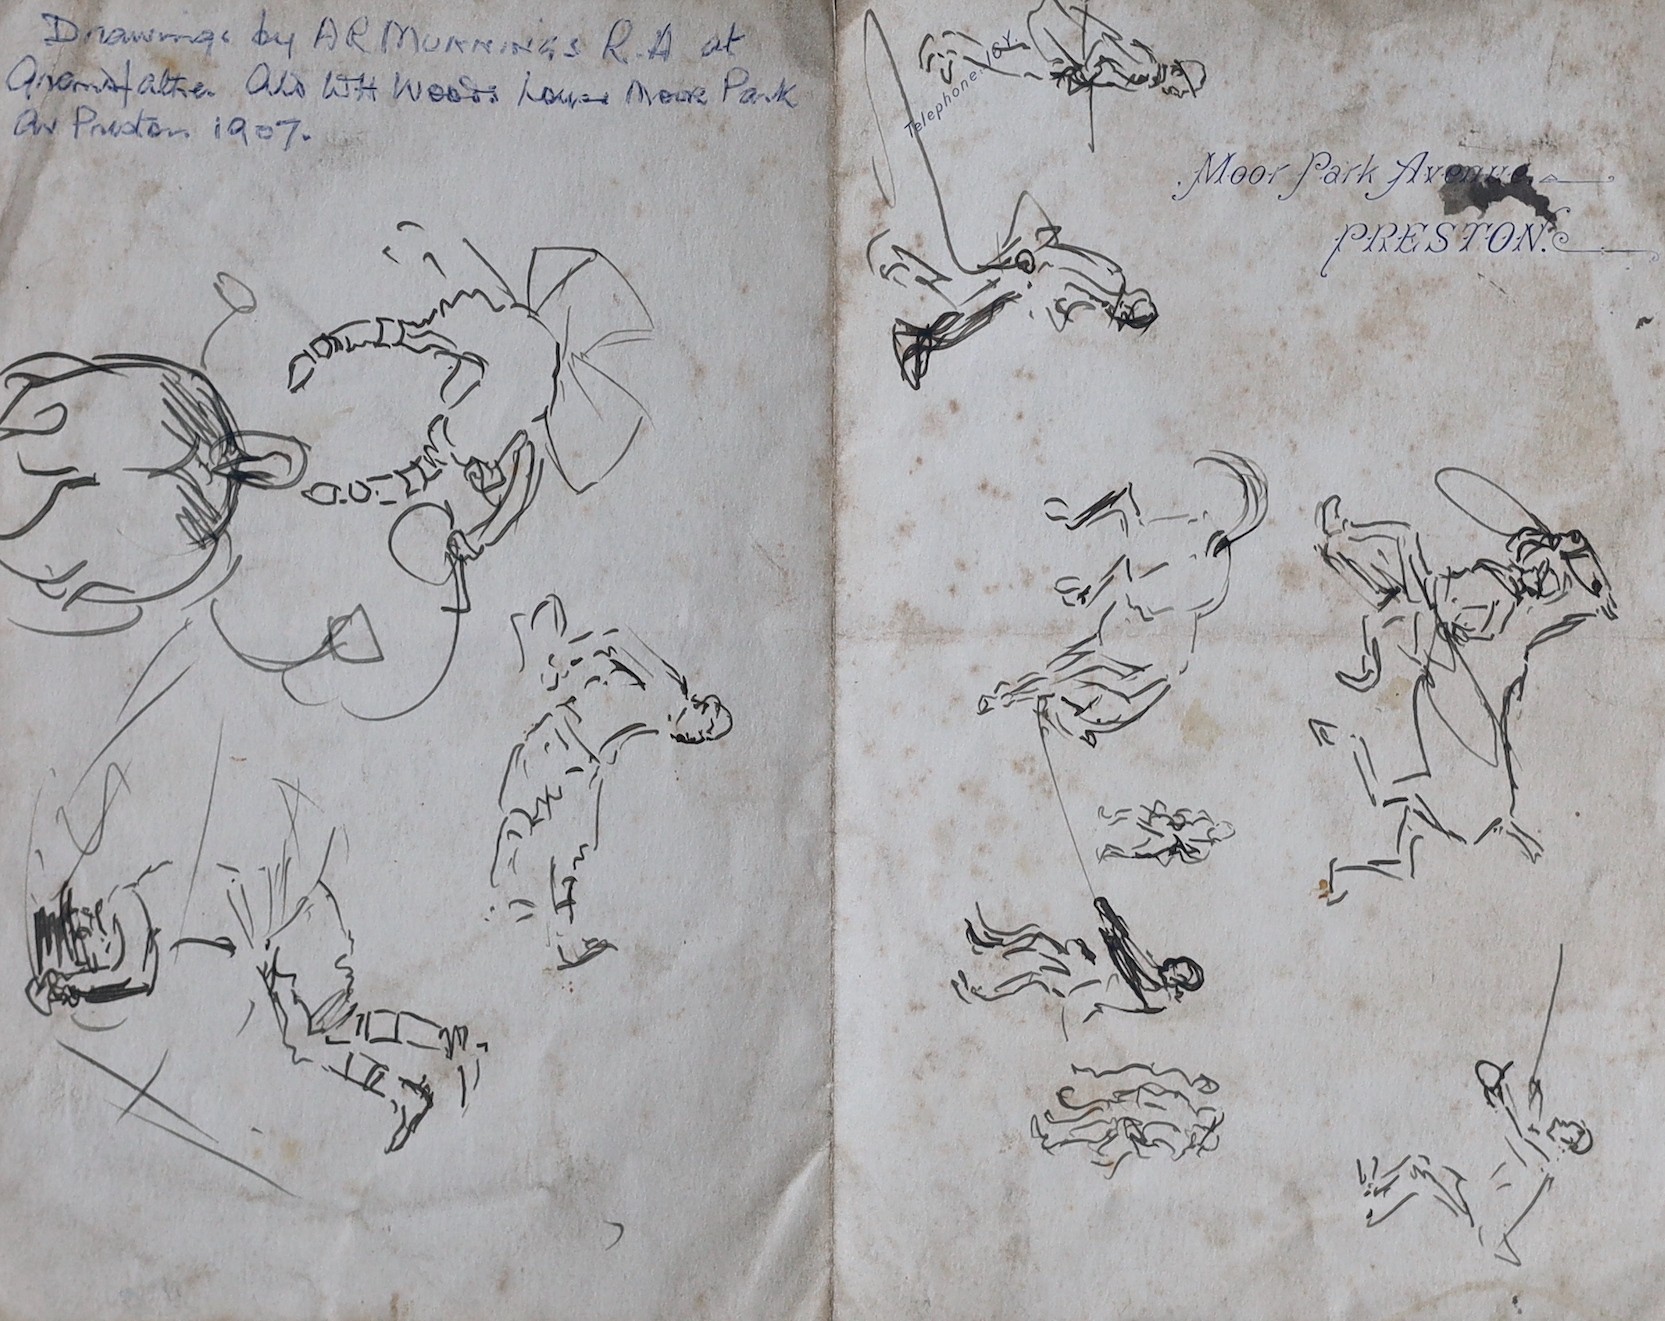 Drawings by AR MUNNINGS R.A at
Grandfather Ald WH Woods house Moor Park
Av Preston 1907.
Telephone
Moor Park Avenue,
PRESTON.